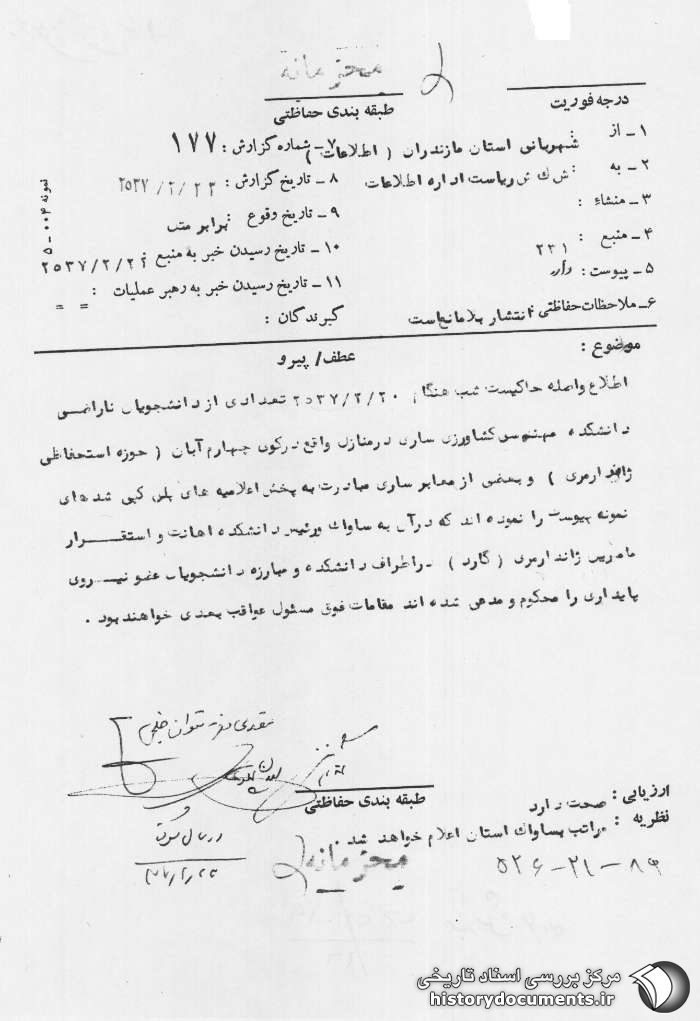 محرمانه
درجه فوریت
طبقه بندی حفاظتی
۱ـ از : شهربانی استان مازندران ( اطلاعات )
۷ـ شماره گزارش : ۱۷۷
۲ـ به :
ریاست اداره اطلاعات
۸ ـ تاریخ گزارش : ۲۵۳۷/۲/۲۳
۳ـ منشاء :
۹ـ تاریخ وقوع : برابر متن
۴ـ منبع : ۲۳۱
۱۰ ـ تاریخ رسیدن خبر به منبع : ۲۵۳۷/۲/۲۲
۵ـ پیوست : دارد
۱۱ ـ تاریخ رسیدن خبر به رهبر عملیات : = =
۶ـ ملاحظات حفاظتی : انتشار بلامانع است
گیرندگان :
نمونه ۰۰۴ ـ ۵
موضوع :
عطف/ پیرو
اطلاع واصله حاکیست شب هنگام ۲۵۳۷/۲/۲۰ تعدادی از دانشجویان ناراضی
دانشکده مهندسی کشاورزی ساری در منازل واقع در کوی چهارم آبان ( حوزه استحفاظی
ژاندارمری ) و بعضی از معابر ساری مبادرت به پخش اعلامیه های پلی کپی شده ای
نمونه پیوست را نموده اند که در آن به ساواک و رئیس دانشکده اهانت و استقرار
مامورین ژاندارمری ( گارد ) در اطراف دانشکده و مبارزه دانشجویان عضو نیروی
پایداری را محکوم و مدعی شده اند مقامات فوق مسئول عواقب بعدی خواهند بود .
ارزیابی : صحت دارد
نظریه : مراتب بساواک استان اعلام خواهد شد .
طبقه بندی حفاظتی
محرمانه
۵۲۶-۲۱-۸۹
مرکز بررسی اسناد تاریخی
historydocuments.ir